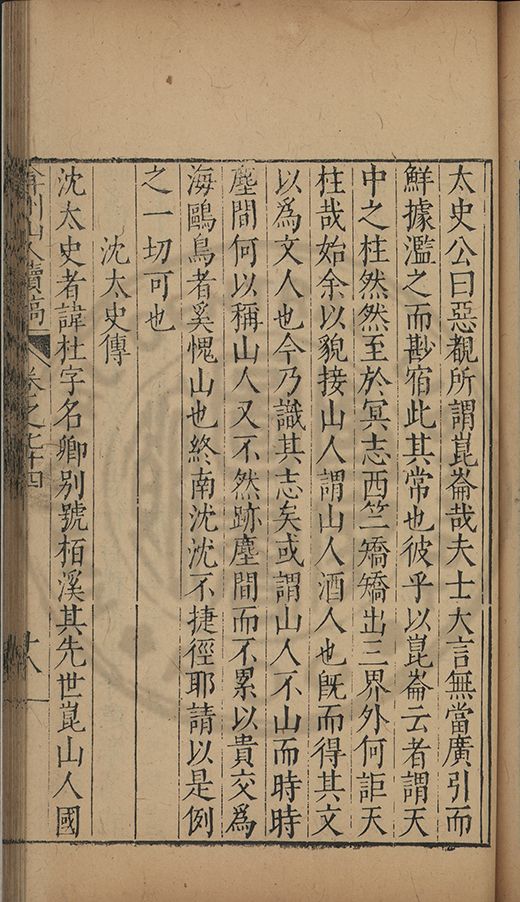 太史公曰惡覩所謂崑崙哉夫士大言無當廣引而
鮮據濫之而尠宿此其常也彼乎以崑崙云者謂天
中之柱然然至於冥志西竺矯矯出三界外何詎天
柱哉始余以貌接山人謂山人酒人也既而得其文
以爲文人也今乃識其志矣或謂山人不山而時時
塵間何以稱山人又不然跡塵間而不累以貴交爲
海鷗鳥者奚愧山也終南沈沈不捷徑耶請以是例
之一切可也
沈太史傳
沈太史者諱杜字名卿别號栢溪其先世崑山人國
弇州山人續稿 卷之七十四 十八